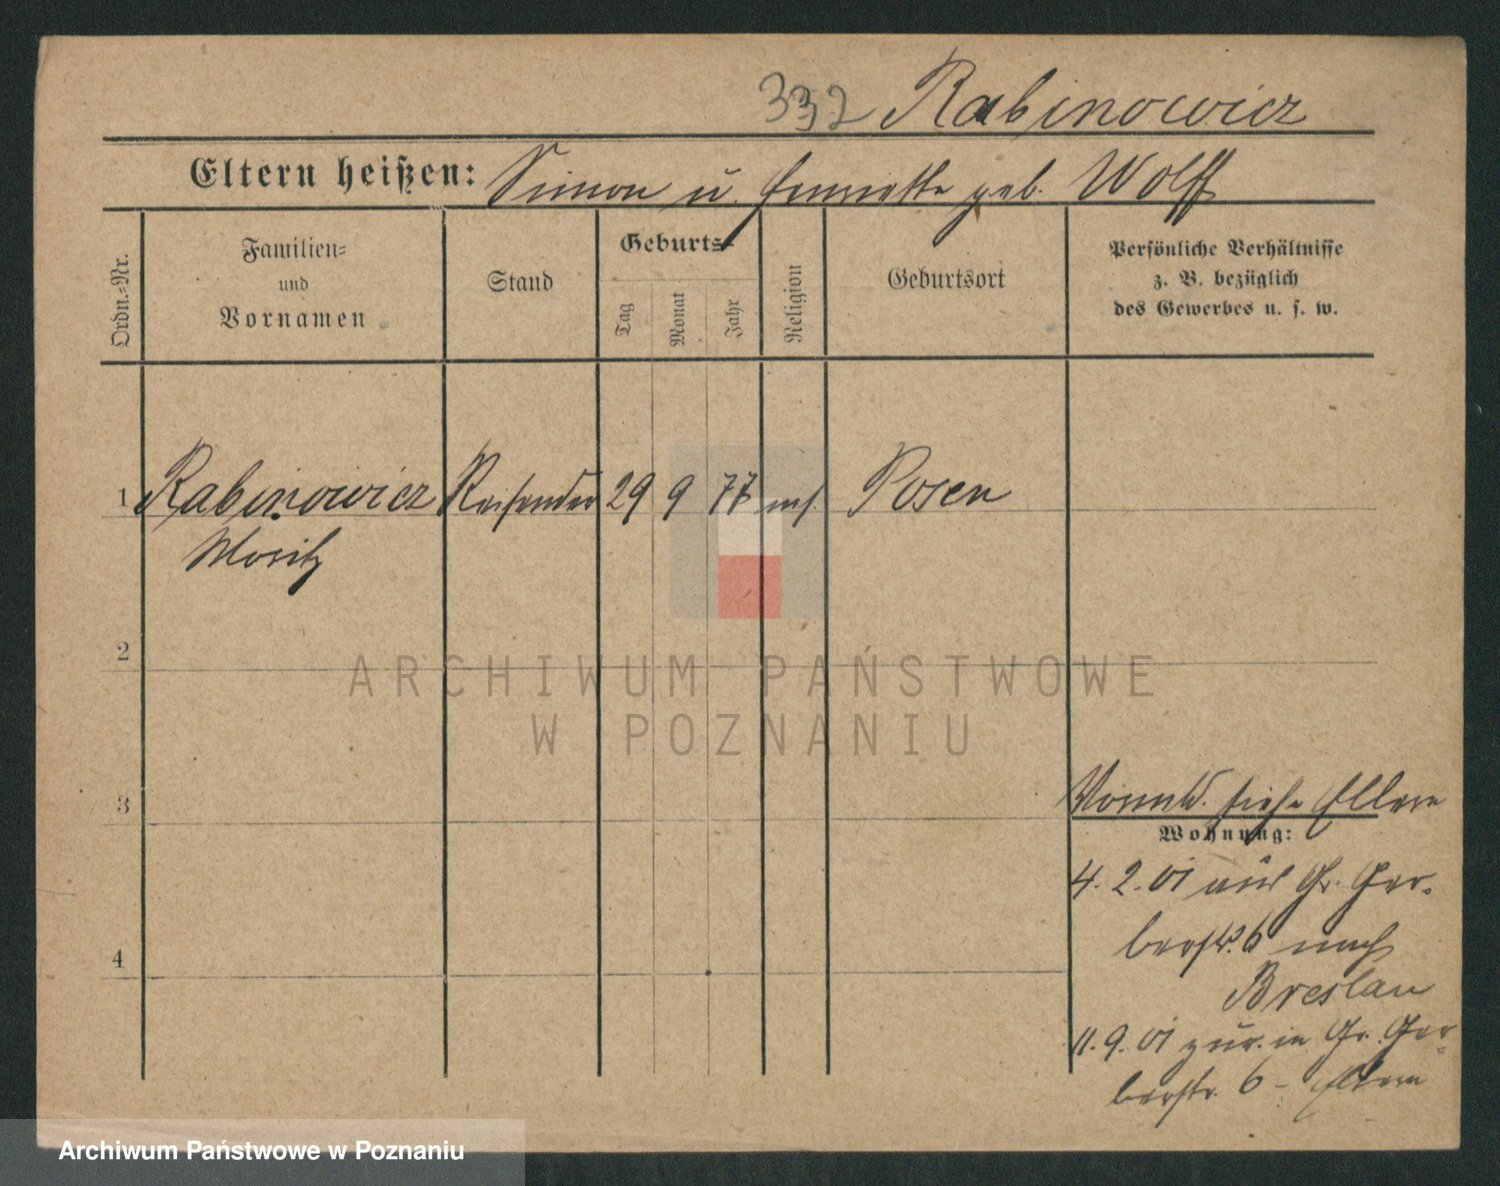 332 Rabinowicz
Eltern heißen: Simon u. Henriette geb. Wolff
Ordn.-Nr.
Familien-
und
Vornamen
Stand
Geburts-
Tag
Monat
Jahr
Religion
Geburtsort
Persönliche Verhältnisse
z. B. bezüglich
des Gewerbes u. s. w.
1 Rabinowicz Reisender 29 9 77 mos. Posen
Moritz
2
ARCHIWUM PAŃSTWOWE
W POZNANIU
3
siehe Eltern
Wohnung:
4. 2. 01 aus Gr. Ger-
berstr. 6 nach
4
Breslau
11. 9. 01 zur. in Gr. Ger-
berstr. 6 - Eltern
Archiwum Państwowe w Poznaniu